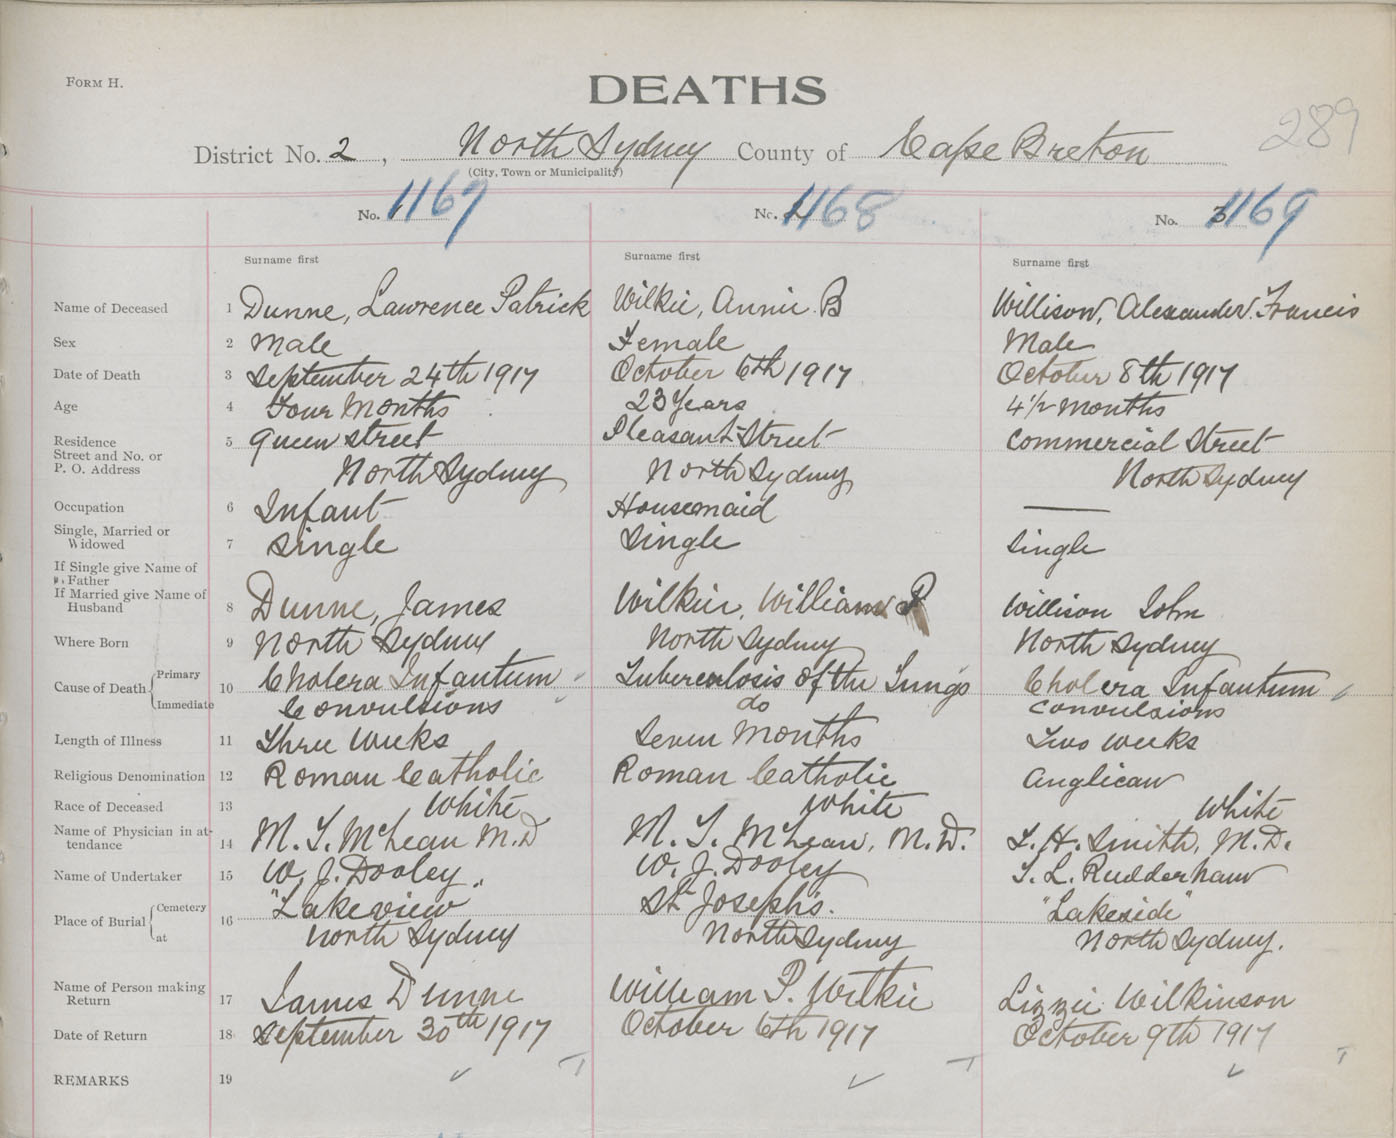 FORM H.
DEATHS
289
District No. 2, North Sydney County of Cape Breton
(City, Town or Municipality)
No. 1167 No. 2 1168 No. 3 1169
Surname first Surname first Surname first
Name of Deceased 1 Dunne, Lawrence Patrick Wilkie, Annie B Willison, Alexander Francis
Sex 2 Male Female Male
Date of Death 3 September 24th 1917 October 6th 1917 October 8th 1917
Age 4 Four Months 23 Years 4 1/2 months
Residence 5 Queen Street Pleasant Street Commercial Street
Street and No. or
P. O. Address North Sydney North Sydney North Sydney
Occupation 6 Infant Housemaid ———
Single, Married or
Widowed 7 Single Single Single
If Single give Name of
Father
If Married give Name of
Husband 8 Dunne, James Wilkie, William P Willison John
Where Born 9 North Sydney North Sydney North Sydney
Cause of Death { Primary 10 Cholera Infantum Tuberculosis of the Lungs Cholera Infantum
Immediate Convulsions do Convulsions
Length of Illness 11 Three weeks Seven Months Two weeks
Religious Denomination 12 Roman Catholic Roman Catholic Anglican
Race of Deceased 13 White White White
Name of Physician in at-
tendance 14 M. T. McLean M.D M. T. McLean, M.D. L. H. Smith, M.D.
Name of Undertaker 15 W. J. Dooley W. J. Dooley T. L. Rudderham
Place of Burial { Cemetery 16 "Lakeview" St Joseph's. "Lakeside"
at North Sydney North Sydney North Sydney.
Name of Person making
Return 17 James Dunne William P. Wilkie Lizzie Wilkinson
Date of Return 18 September 30th 1917 October 6th 1917 October 9th 1917
REMARKS 19